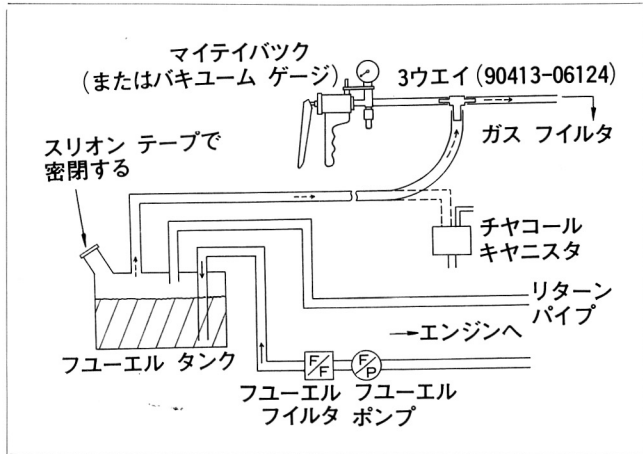 マイテイバツク
(またはバキユーム ゲージ)
3ウエイ(90413-06124)
ガス フイルタ
スリオン テープで
密閉する
チヤコール
キヤニスタ
リターン
パイプ
→エンジンへ
フユーエル タンク
F/F
F/P
フユーエル
フイルタ
フユーエル
ポンプ